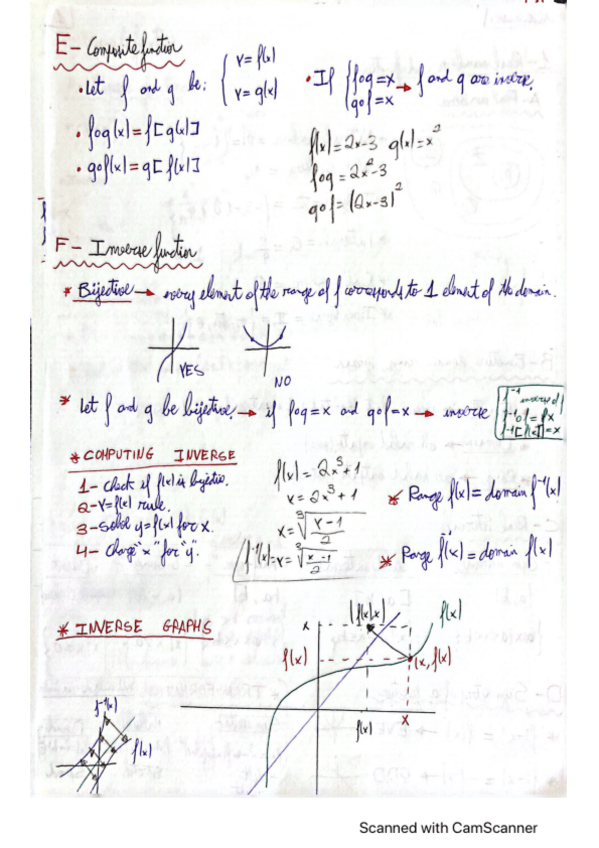 E- Composite function
• Let f and g be: { y = f(x)
y = g(x)
• If { fog = x
gof = x → f and g are invers,
• fog(x) = f[g(x)]
• gof(x) = g[f(x)]
f(x) = 2x-3 g(x) = x²
fog = 2x²-3
gof = (2x-3)²
F- Inverse function
* Bijective → every element of the range of f corresponds to 1 element of the domain.
YES
NO
* Let f and g be bijective, → if fog = x and gof = x → inverse
f⁻¹ inverse of f
f⁻¹of = fx
f⁻¹[f(x)] = x
* COMPUTING INVERSE
1- Check if f(x) is bijective.
2- y=f(x) rule.
3- Solve y=f(x) for x.
4- Change "x" for "y".
f(x) = 2x³+1
y = 2x³+1
x = ³√((y-1)/2)
f⁻¹(x) = y = ³√((x-1)/2)
* Range f(x) = domain f⁻¹(x)
* Range f⁻¹(x) = domain f(x)
* INVERSE GRAPHS
x
(f(x),x)
f(x)
f(x)
(x, f(x))
f(x)
x
f⁻¹(x)
f(x)
Scanned with CamScanner